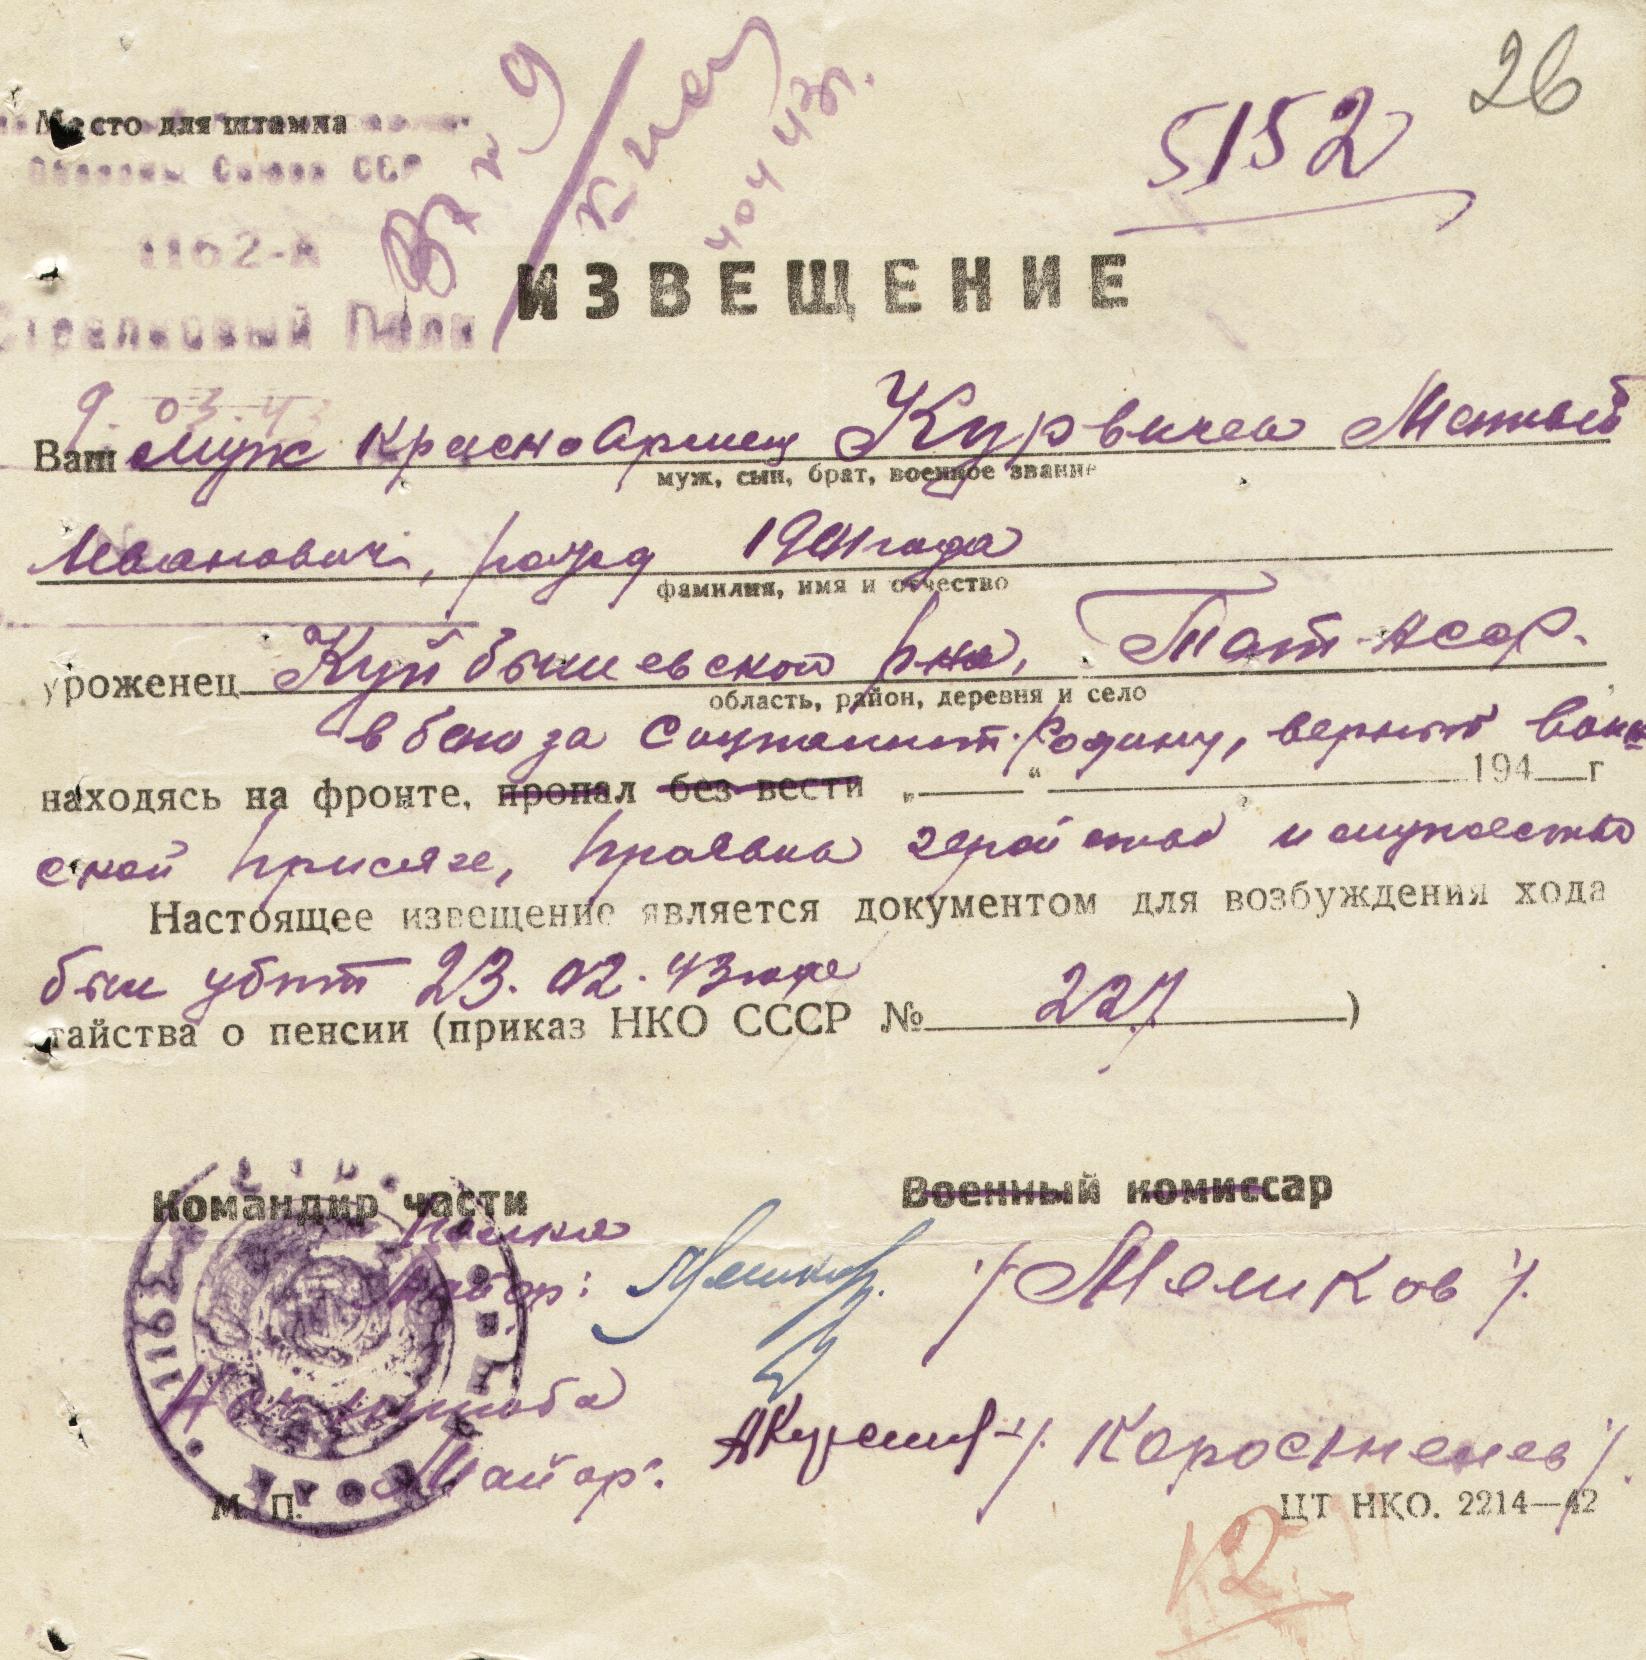 26
5152
Место для штампа
Обороны Союза ССР
1162-й
Стрелковый Полк
9.03.43
ИЗВЕЩЕНИЕ
Ваш муж красноармеец Курвичев Матвей
муж, сын, брат, военное звание
Иванович, рожд 1901 года
фамилия, имя и отчество
уроженец Куйбышевской р-на, Тат-АССР.
область, район, деревня и село
в бою за Социалист. Родину, верный воин
находясь на фронте, пропал без вести „ “ 194 г
ской присяге, проявив геройство и мужество
Настоящее извещение является документом для возбуждения хода
был убит 23.02.43 года
тайства о пенсии (приказ НКО СССР № 227 )
Командир части Военный комиссар
полка
Майор: /Меликов/.
Нач штаба
Майор: /Коростелев/.
М. П.
ЦТ НКО. 2214—42
12